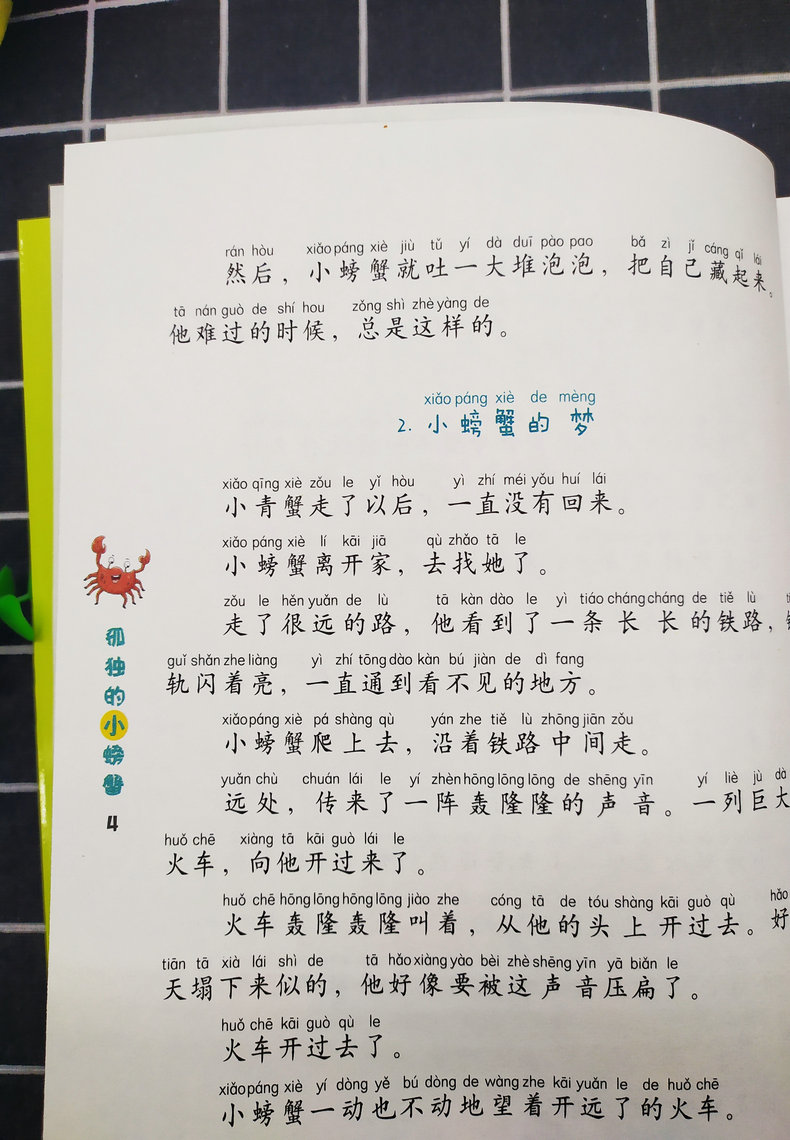 rán hòu xiǎo páng xiè jiù tǔ yí dà duī pào pao bǎ zì jǐ cáng qǐ lái
然后，小螃蟹就吐一大堆泡泡，把自己藏起来。
tā nán guò de shí hou zǒng shì zhè yàng de
他难过的时候，总是这样的。
xiǎo páng xiè de mèng
2. 小螃蟹的梦
xiǎo qīng xiè zǒu le yǐ hòu yì zhí méi yǒu huí lái
小青蟹走了以后，一直没有回来。
xiǎo páng xiè lí kāi jiā qù zhǎo tā le
小螃蟹离开家，去找她了。
zǒu le hěn yuǎn de lù tā kàn dào le yì tiáo cháng cháng de tiě lù
走了很远的路，他看到了一条长长的铁路，
guǐ shǎn zhe liàng yì zhí tōng dào kàn bú jiàn de dì fang
轨闪着亮，一直通到看不见的地方。
xiǎo páng xiè pá shàng qù yán zhe tiě lù zhōng jiān zǒu
小螃蟹爬上去，沿着铁路中间走。
yuǎn chù chuán lái le yí zhèn hōng lōng lōng de shēng yīn yí liè jù dà
远处，传来了一阵轰隆隆的声音。一列巨大
huǒ chē xiàng tā kāi guò lái le
火车，向他开过来了。
huǒ chē hōng lōng hōng lōng jiào zhe cóng tā de tóu shàng kāi guò qù hǎo
火车轰隆轰隆叫着，从他的头上开过去。好
tiān tā xià lái shì de tā hǎo xiàng yào bèi zhè shēng yīn yā biǎn le
天塌下来似的，他好像要被这声音压扁了。
huǒ chē kāi guò qù le
火车开过去了。
xiǎo páng xiè yí dòng yě bú dòng de wàng zhe kāi yuǎn le de huǒ chē
小螃蟹一动也不动地望着开远了的火车。
孤独的小螃蟹
4